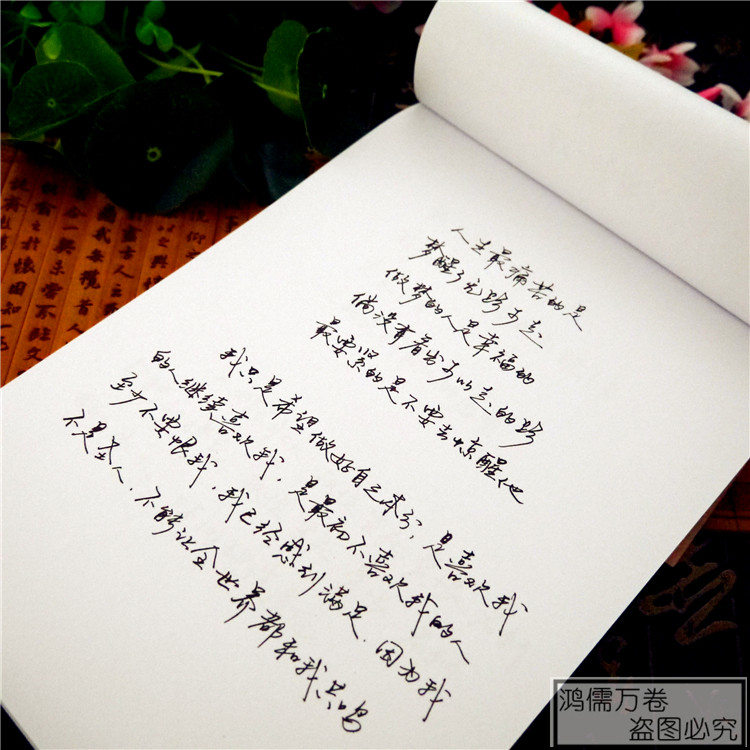 人生最痛苦的是
梦醒了无路可走
做梦的人是幸福的
倘没有看出可以走的路
最要紧的是不要去惊醒他
我只是希望做好自己本分,是喜欢我
的人继续喜欢我,是最初不喜欢我的人
至少不要恨我,我已经感到满足.因为我
不是圣人.不能让全世界都和我共鸣
鸿儒万卷
盗图必究